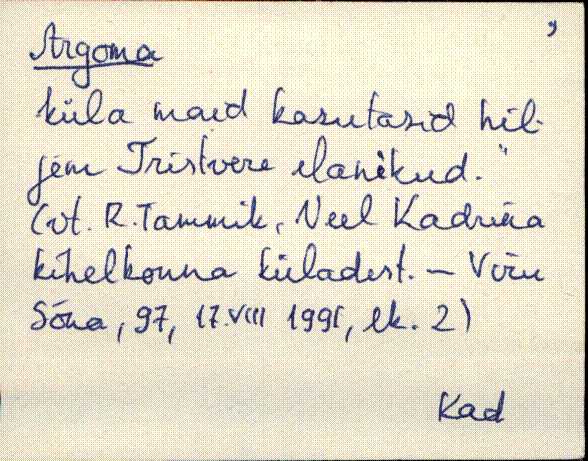 ,
Argoma
küla maid kasutasid hil-
jem Tristvere elanikud."
(vt. R. Tammik, Veel Kadrina
kihelkonna küladest. – Viru
Sõna, 97, 17.VIII 1991, lk. 2)
Kad